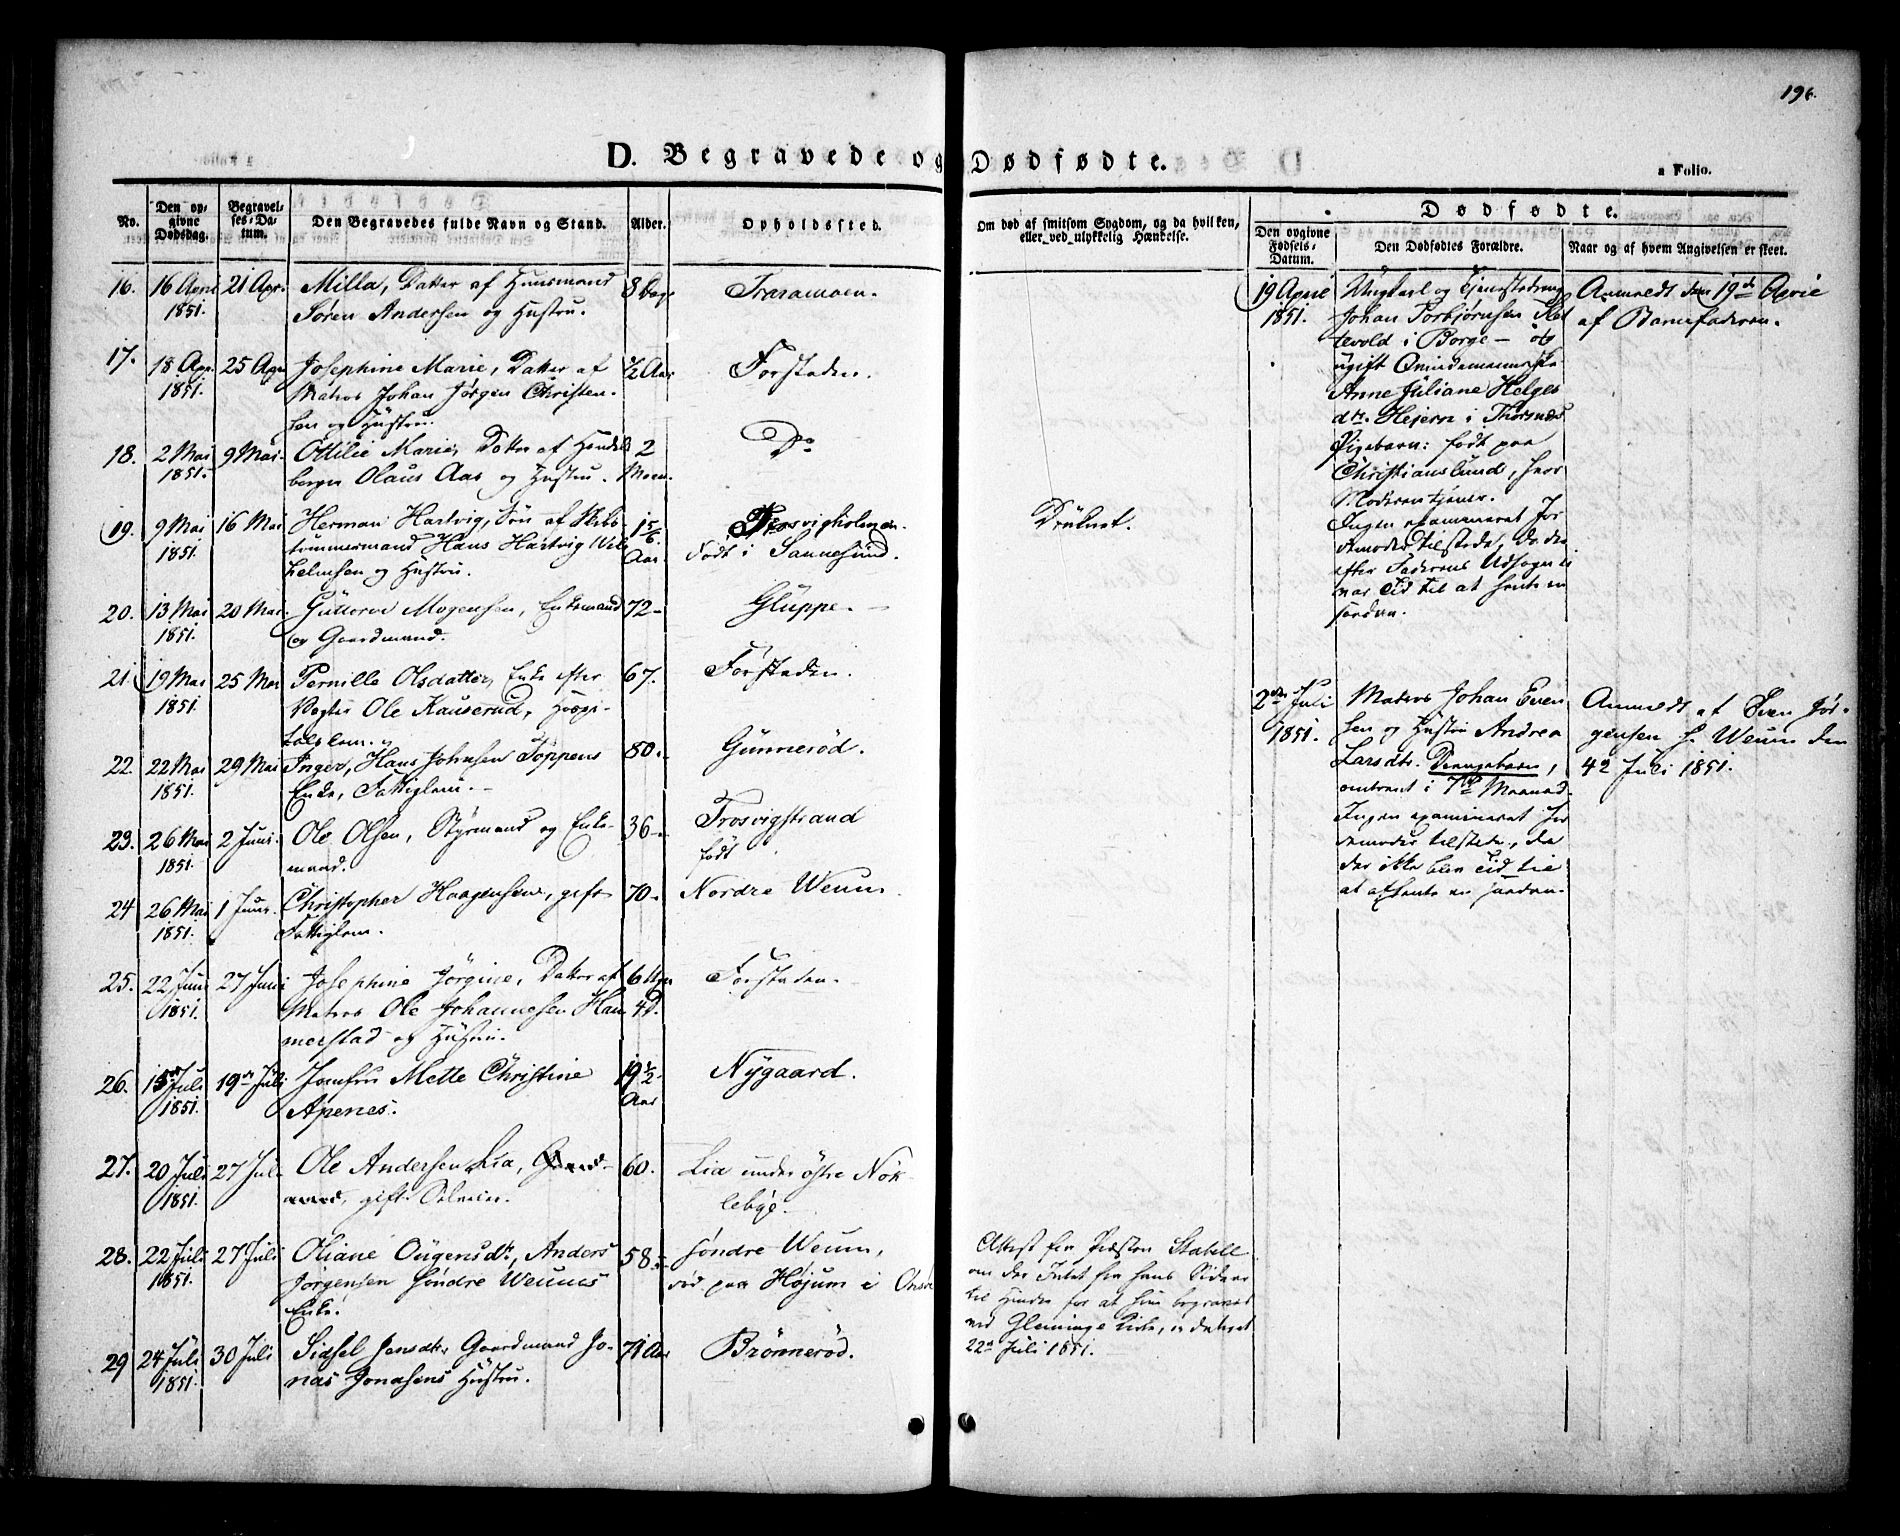 196.
D. Begravede og Dødfødte.
a Folio.
No.
Den opgivne Dødsdag.
Begravelses-Datum.
Den Begravedes fulde Navn og Stand.
Alder.
Opholdssted.
Om død af smitsom Sygdom, og da hvilken, eller ved ulykkelig Hændelse.
Dødfødte.
Den opgivne Fødsels-Datum.
Den Dødfødtes Forældre.
Naar og af hvem Angivelsen er skeet.
16. 16 April 21 Apr. Milla, Datter af Huusmand 8 Dage
1851. Søren Andersen og Hustru.
17. 18 Apr. 25 Apr. Josephine Marie, Datter af ½ Aar Forstaden.
1851. Matros Johan Jørgen Christen-
sen og Hustru.
18. 2 Mai 9 Mai. Ottilie Marie, Datter af Handels 2 Do
1851. borger Olaus Aas og Hustru. Maan.
19. 9 Mai 16 Mai Herman Hartvig, Søn af Skibs- 1 5/6 Trosvigholmen. Druknet.
1851. tømmermand Hans Hartvig Vil- Aar. Født i Sannesund.
helmsen og Hustru.
20. 13 Mai 20 Mai. Guttorm Mogensen, Enkemand 72 Gluppe.
1851. og Gaardmand.
21. 19 Mai 25 Mai Pernille Olsdatter, Enke efter 67. Forstaden.
1851. Vægter Ole Kauserud, Hospi-
talslem.
22. 22 Mai 29 Mai Inger, Hans Johnsen Toppens 80. Gunnerød.
1851. Enke, Fattiglem.
23. 26 Mai 2 Juni. Ole Olsen, Styrmand og Enke- 36 Trosvigstrand
1851. mand. født
24 26 Mai 1 Juni Christopher Haagensen, gift 70. Nordre Weum.
1851. Fattiglem.
25. 22 Juni 27 Juni Josephine Jørgine, Datter af 6 Uger Forstaden.
1851. Matros Ole Johannesen Ham 4 D.
merstad og Hustru.
26. 15de Juli 19de Juli Jomfru Mette Christine 19½ Nygaard.
1851. Apenes. Aar
27. 20 Juli 27 Juli Ole Andersen Lia, Gaard- 60. Lia under østre Nøk-
1851. mand, gift. lebye.
28. 22 Juli 27 Juli Oliane Ougensdtr, Anders 58 Søndre Weum,
1851. Jørgensen Søndre Weums død paa Højum i Onsø
Enke.
Attest fra Præsten Stabell
om der Intet fra hans Side er
til Hinder for at hun begraves
ved Glemminge Kirke, er dateret
22de Juli 1851.
29 24 Juli 30 Juli Sidsel Jensdtr, Gaardmand Jo- 71 Aar Brønnerød.
1851. nas Jonasens Hustru.
19 April
1851.
Ungkarl og Tjenestedreng
Johan Torbjørnsen
i Borge – og
ugift
Anne Juliane Helges
dtr. i Thorsnæs
Pigebarn: født paa
Christianslund, hvor
Moderen tjener.
Ingen examineret Jor
demoder tilstede, da der
efter Faderens Udsagn ei
var Tid til at hente en
saadan.
Anmeldt den 19de April
af Barnefaderen.
2den Juli
1851.
Matros Johan Even
sen og Hustru Andrea
Larsdtr. Drengebarn,
omtrent i 7de Maaned.
Ingen examineret Jor
demoder tilstede, da
der ikke blev Tid til
at afhente en saadan.
Anmeldt af Even Jør-
gensen S. Weum den
42 Juli 1851.